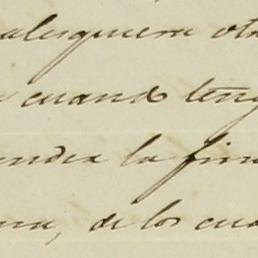 alesquiera otr
cuando teng
ender la fin
na, de los cua